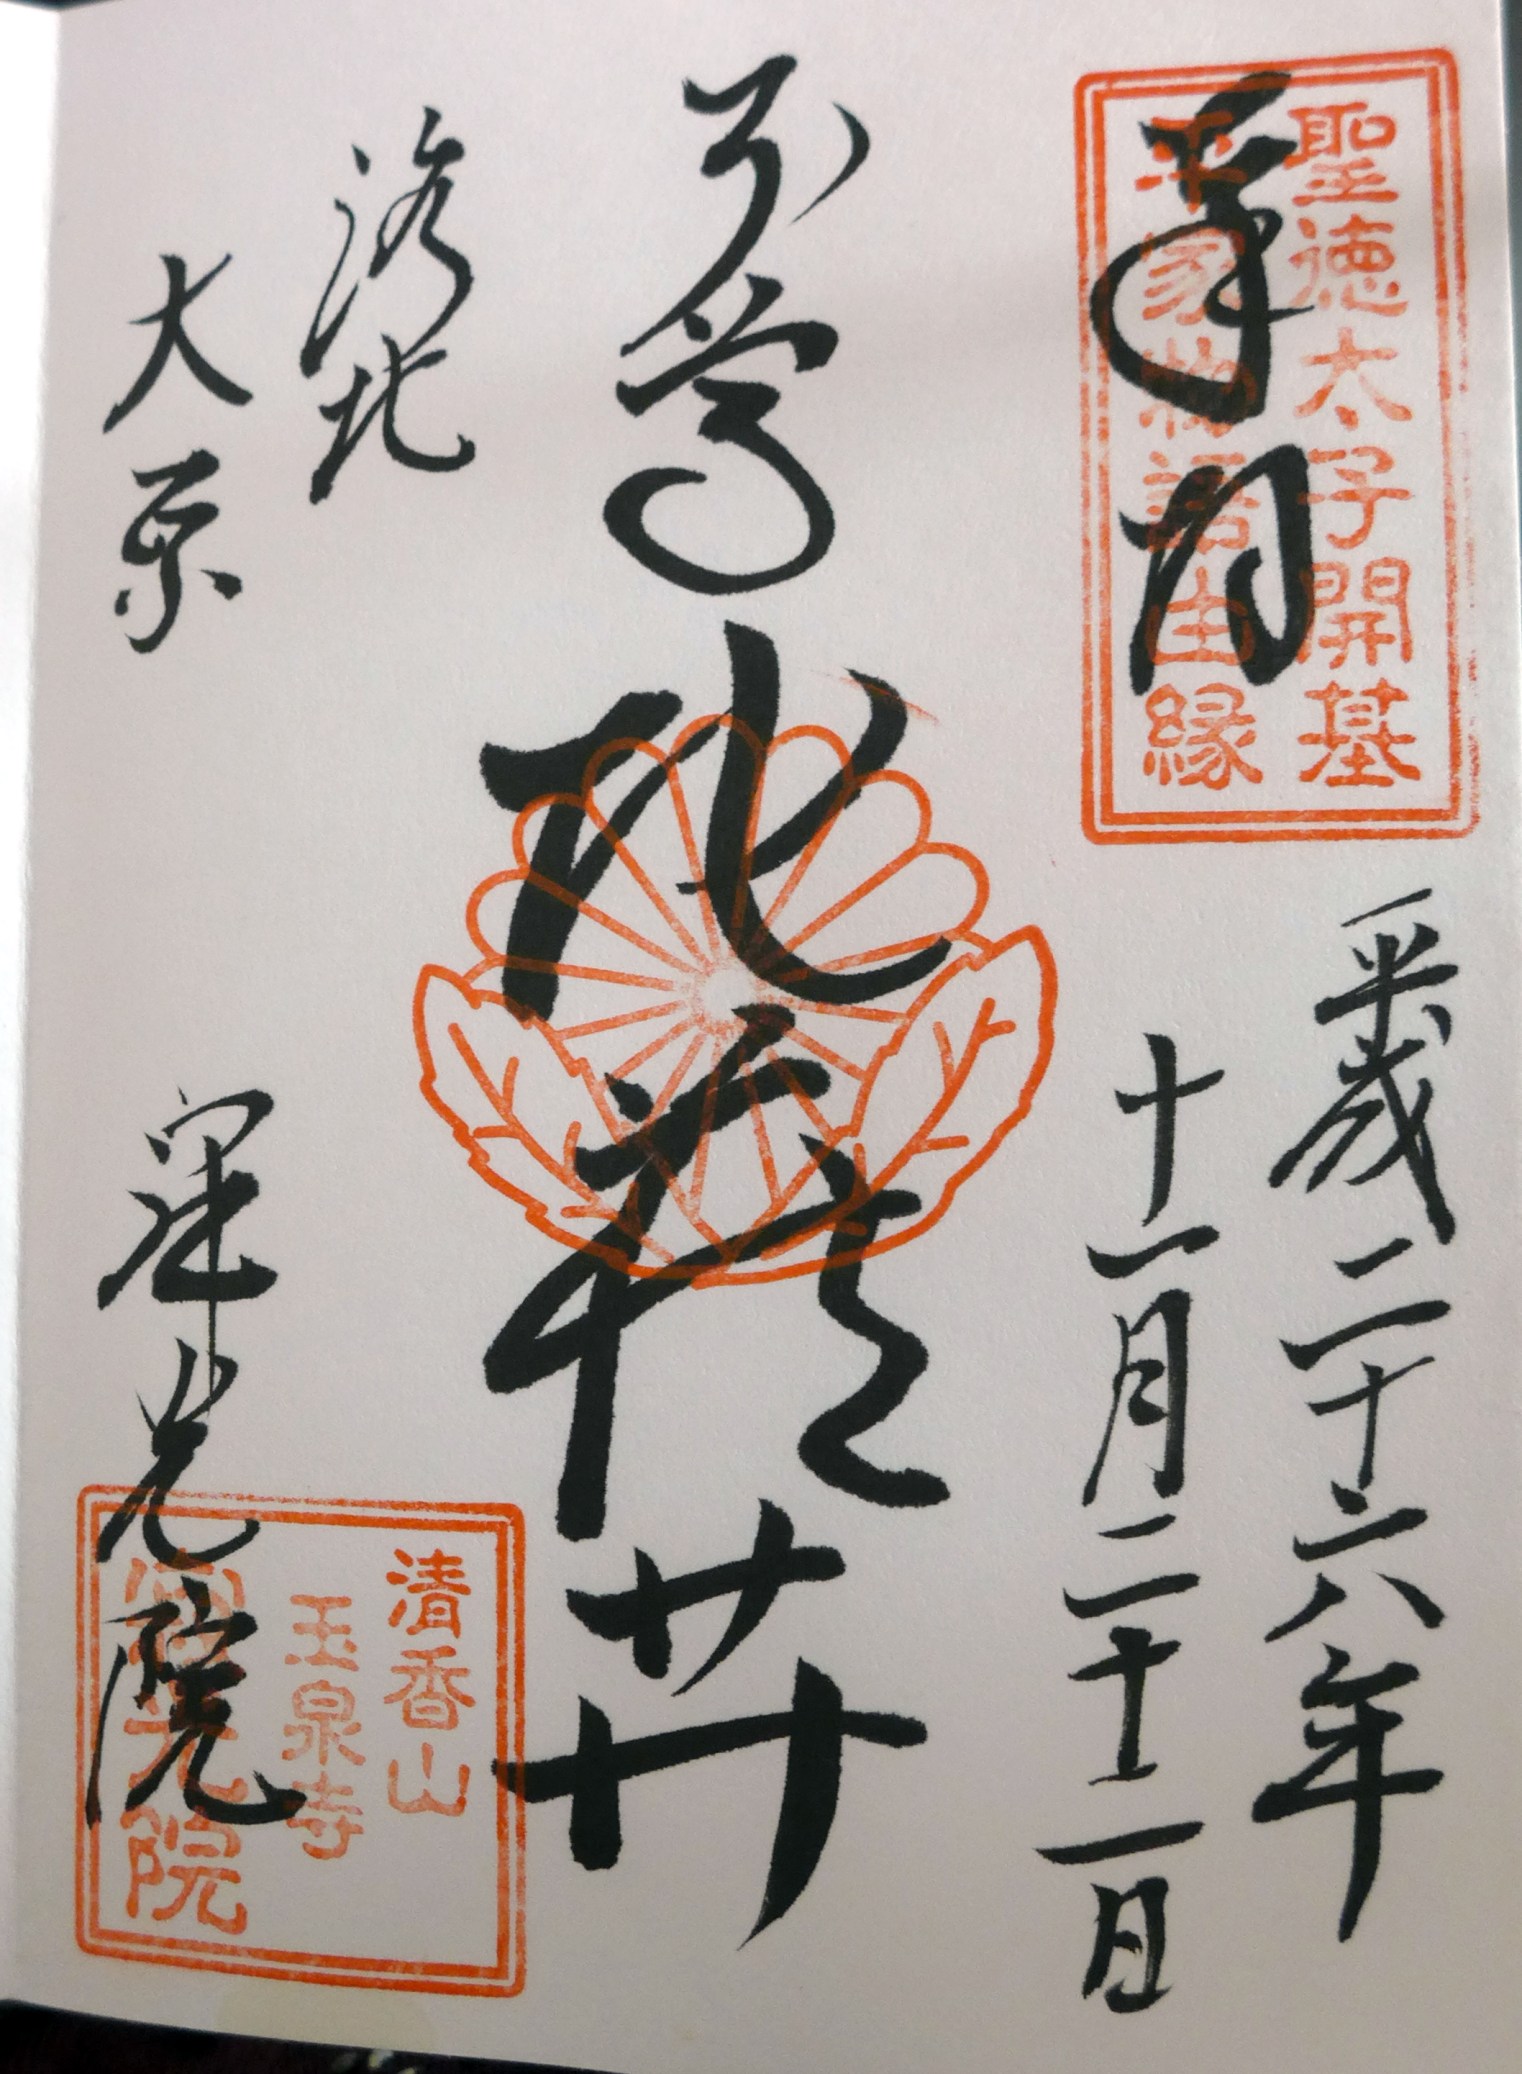 聖徳太子開基
平家物語由縁
奉拝
平成二十六年
十一月二十二日
本尊
地蔵𦬇
洛北
大原
寂光院
清香山
玉泉寺
寂光院